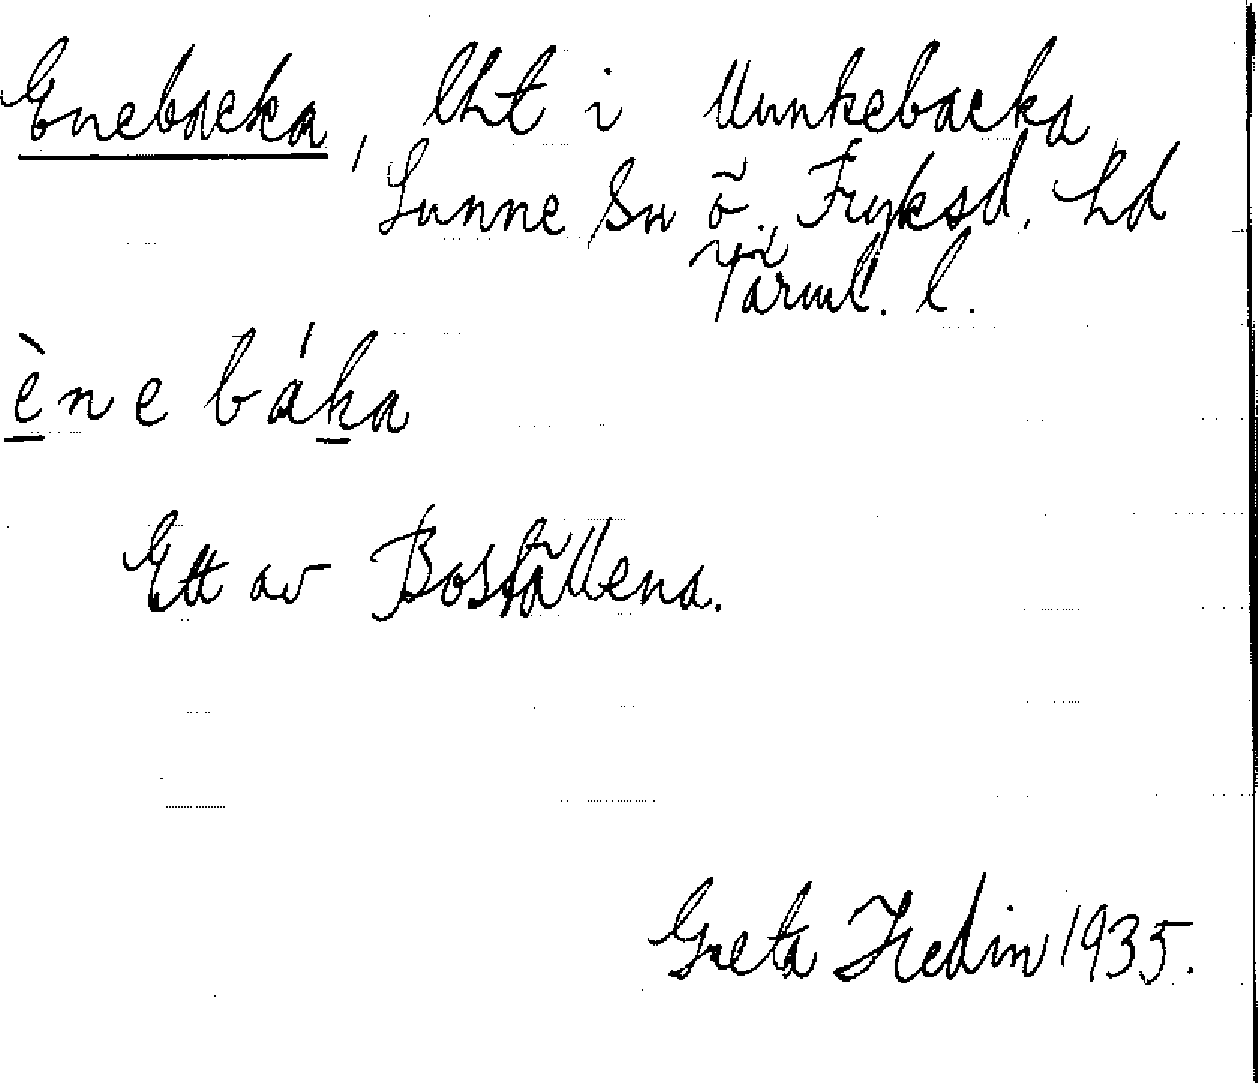 Enebacka, lht i Munkebacka
Sunne Sn Ö. Fryksd. hd
Värml. l.
ènebáka
Ett av Boställena.
Greta Hedin 1935.